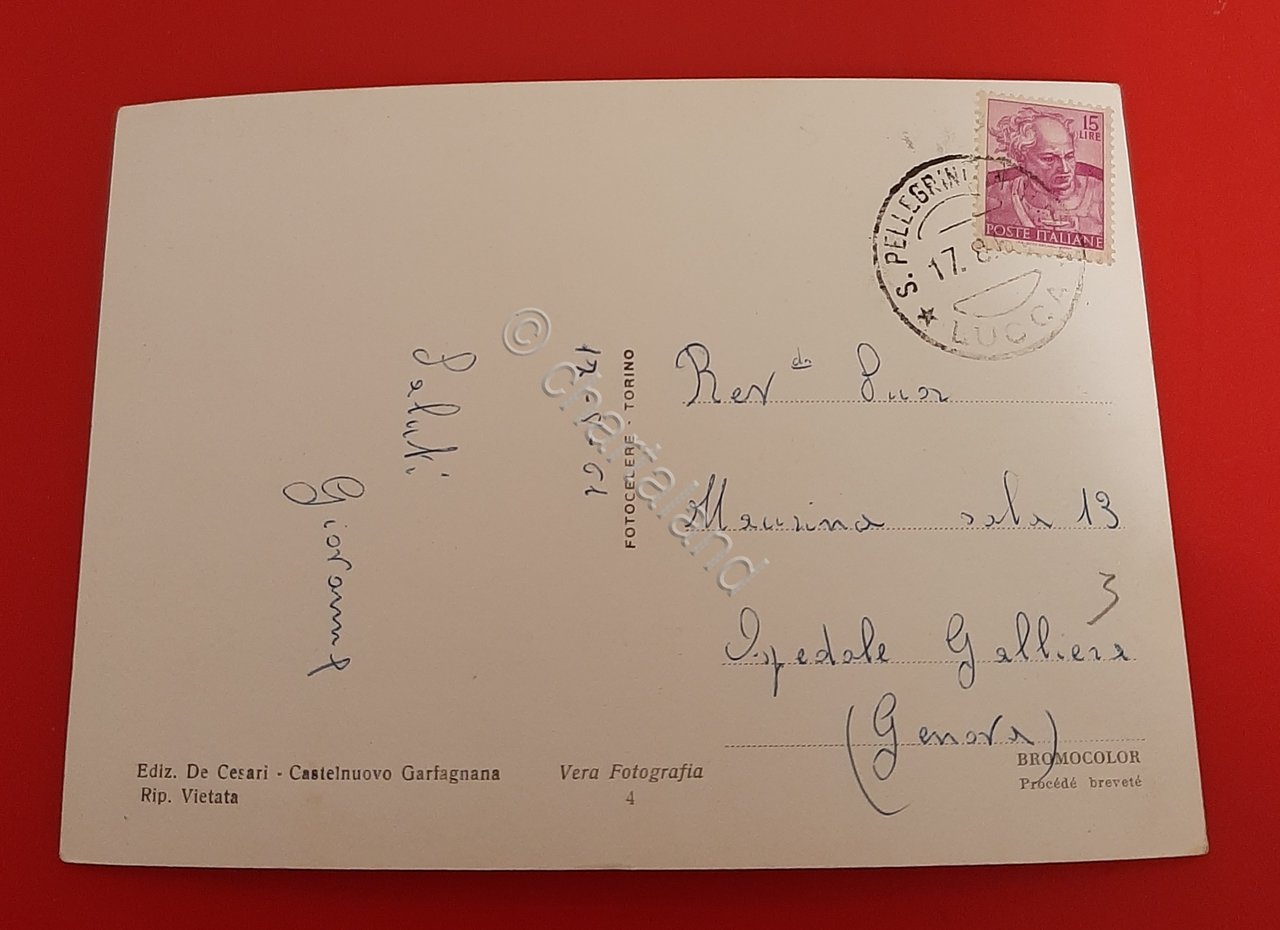 15
LIRE
POSTE ITALIANE
S. PELLEGRINO
17. 8
LUCCA
12-8-61
Saluti
Giovanni
FOTOCELERE - TORINO
Rev da Suor
Maurina sala 13
3
Ospedale Galliera
(Genova)
Ediz. De Cesari - Castelnuovo Garfagnana
Rip. Vietata
Vera Fotografia
4
BROMOCOLOR
Procédé breveté
© chartaland